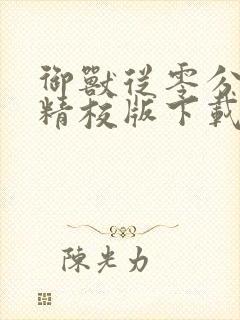 御獸從零分
精校版下載
陳光力